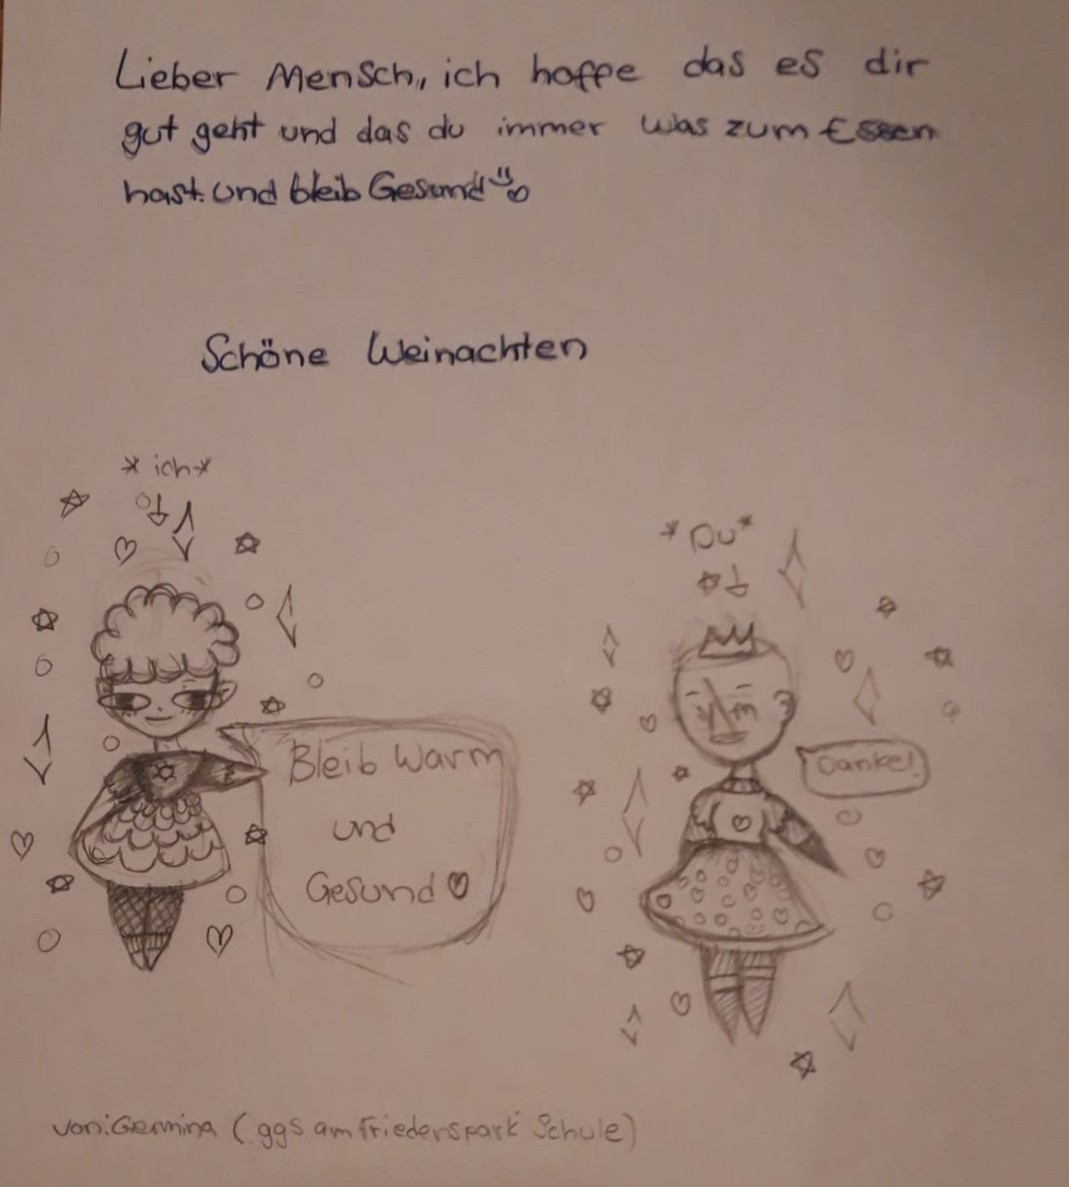 Lieber Mensch, ich hoffe das es dir
gut geht und das du immer was zum Essen
hast. Und bleib Gesund
Schöne Weinachten
*ich*
*Du*
Bleib Warm
und
Gesund
Danke!
von: Germina (ggs am friedenspark Schule)